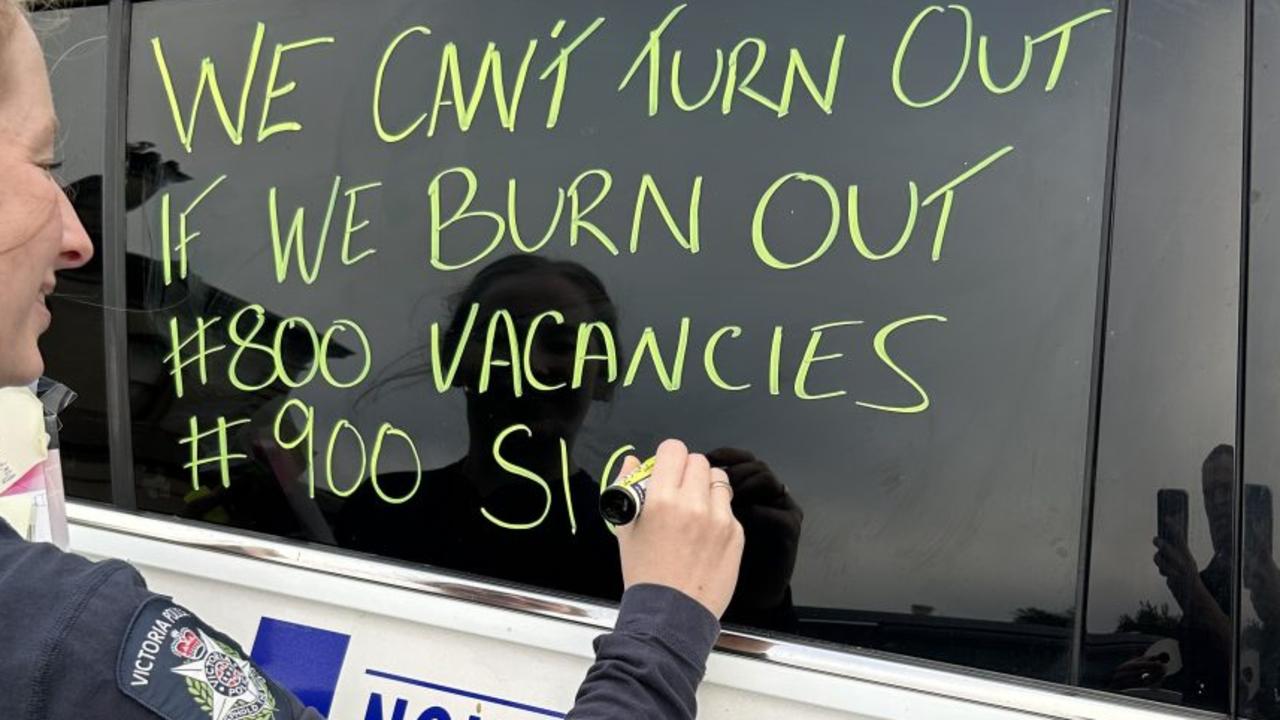 WE CAN'T TURN OUT
IF WE BURN OUT
#800 VACANCIES
#900 SIC
VICTORIA POLICE